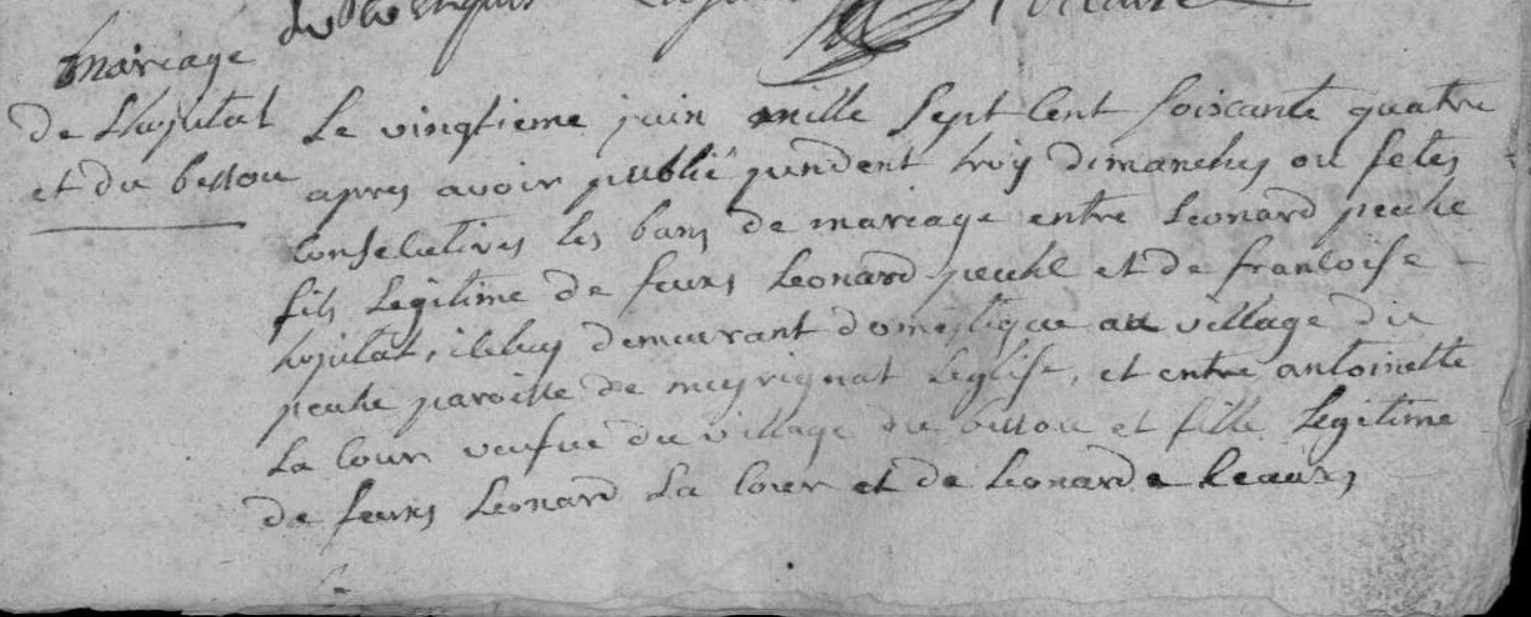 mariage
de Lhopital
et du bessou
Le vingtieme juin mille sept cent soixante quatre
apres avoir publié pendent troiy dimanches ou fetes
consecutives les bans de mariage entre Leonard peuche
fils legitime de feurs Leonard peuche et de francoise
hopital, demeurant domestique au village du
peuche paroisse de meyrignat Leglise, et entre antoinette
La cour veufue du village du bessou et fille Legitime
de feurs Leonard La cour et de Leonarde